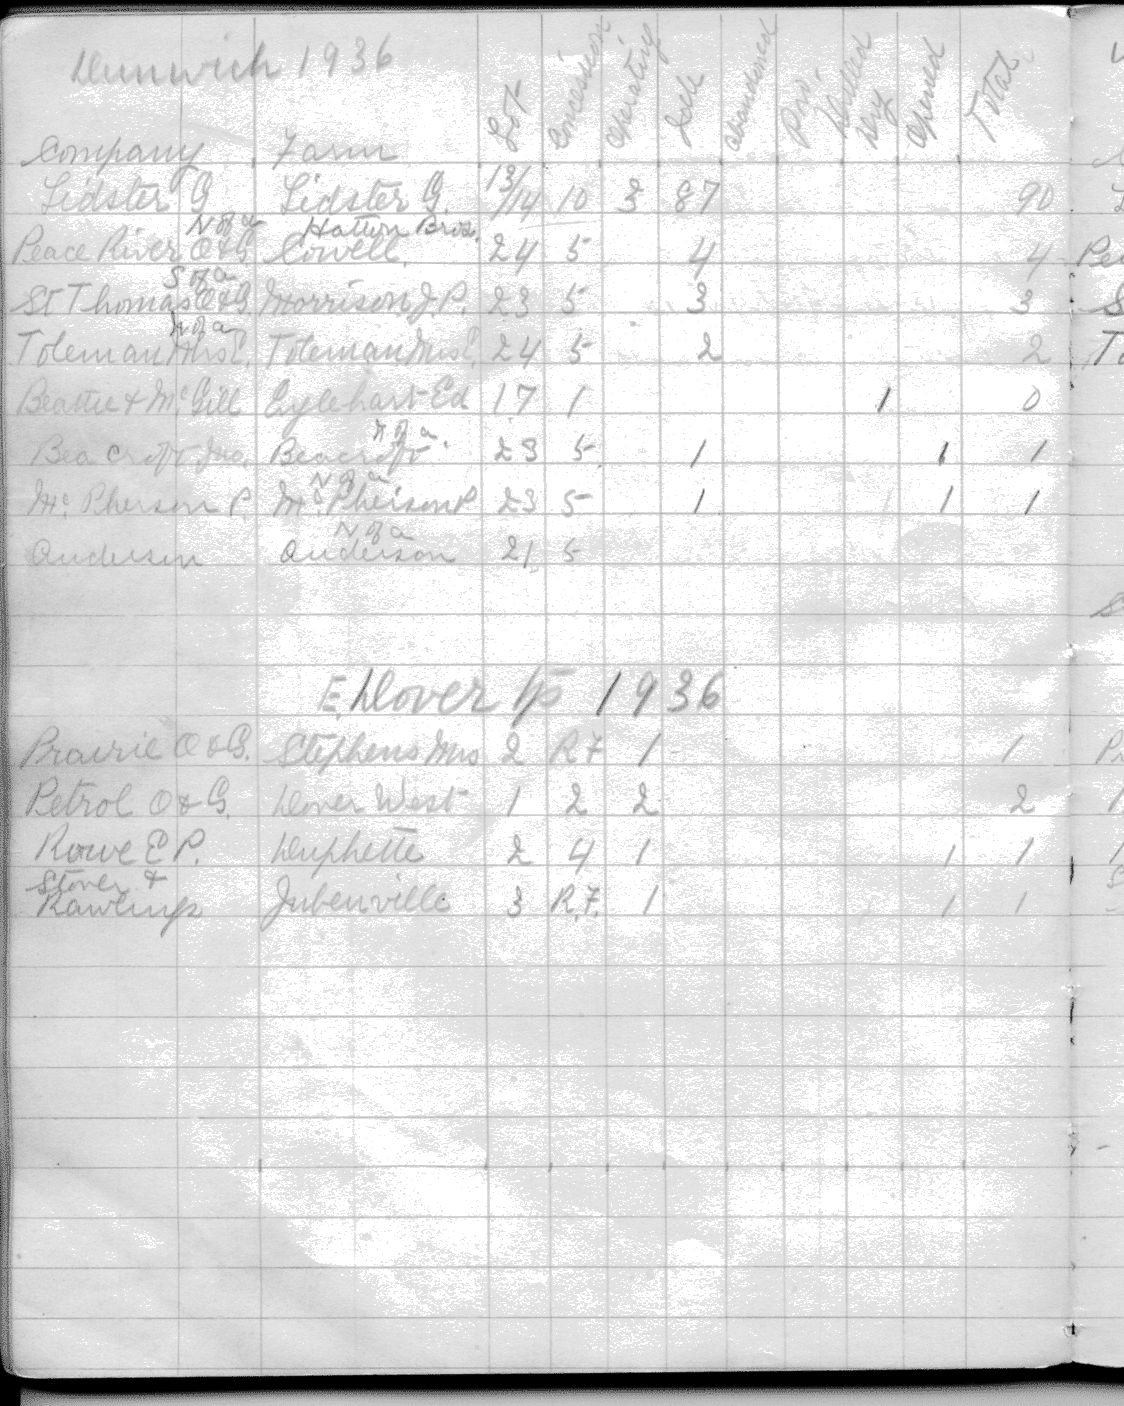 Dunwich 1936
Company Farm Lot Concession Operating Idle abandoned Pro. Drilled Dry Opened Total
Lidster G Lidster G. 13/14 10 3 87 90
N of a Hatton Bros.
Peace River O & G Cowell. 24 5 4 4
S of a
St Thomas O & G. Morrison J.P. 23 5 3 3
N of a
Toleman Mrs E. Toleman Mrs E. 24 5 2 2
Beattie & McGill Eylehart Ed 17 1 1 0
N of a.
Beacroft Jno. Beacroft 23 5 1 1 1
N of a
Mc.Pherson P. Mc.Pherson P 23 5 1 1 1
N of a
Anderson Anderson 21 5
E. Dover Tp 1936
Prairie O & G. Stephens Mrs 2 R 7 1 1
Petrol O & G. Dover West 1 2 2 2
Rowe E P. Duphette 2 4 1 1 1
Stover &
Rawlings Jubenville 3 R.7. 1 1 1